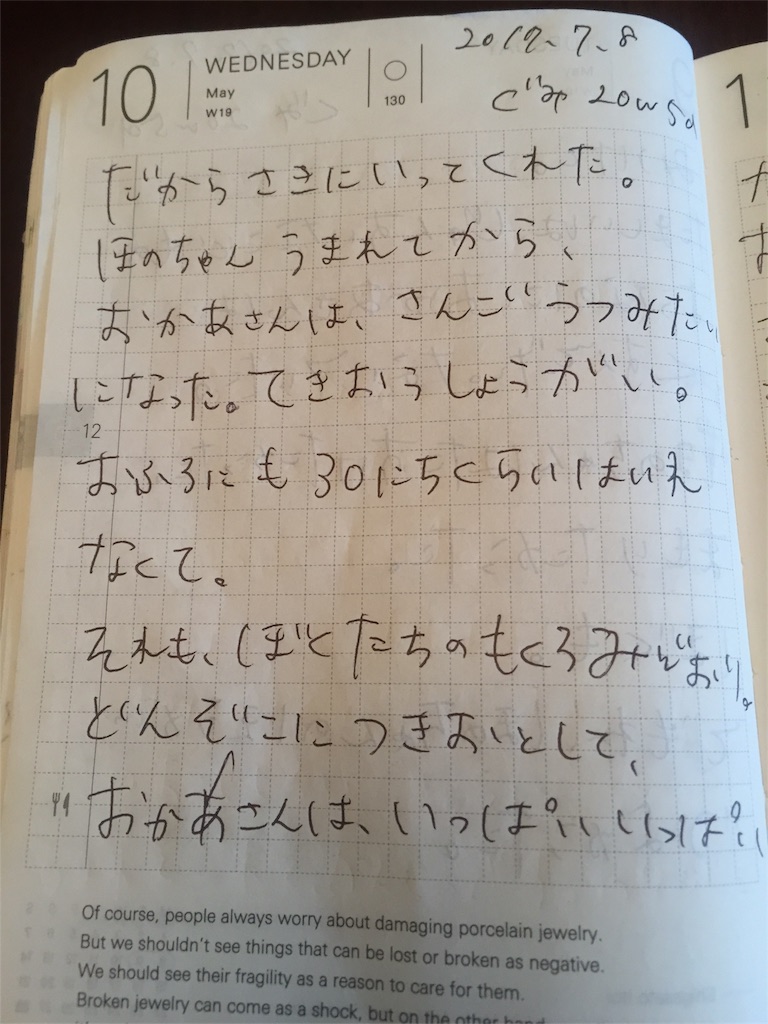 10
WEDNESDAY
May
W19
130
2019.7.8
ぐみ 20w5d
だからさきにいってくれた。
ほのちゃんうまれてから、
おかあさんは、さんごうつみたい
になった。てきおうしょうがい。
12
おふろにも30にちくらいはいれ
なくて。
それも、ぼくたちのもくろみどおり。
どんぞこにつきおとして、
おかあさんは、いっぱいいっぱい
Of course, people always worry about damaging porcelain jewelry.
But we shouldn't see things that can be lost or broken as negative.
We should see their fragility as a reason to care for them.
Broken jewelry can come as a shock, but on the other hand
1